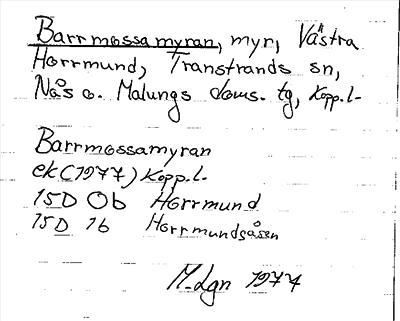 Barrmossamyran, myr, Västra
Horrmund, Transtrands sn,
Nås o. Malungs doms. tg, Kopp. l.
Barrmossamyran
ek (1977) Kopp. l.
15D 0b Horrmund
15D 1b Horrmundsåsen
M. Lgn 1977